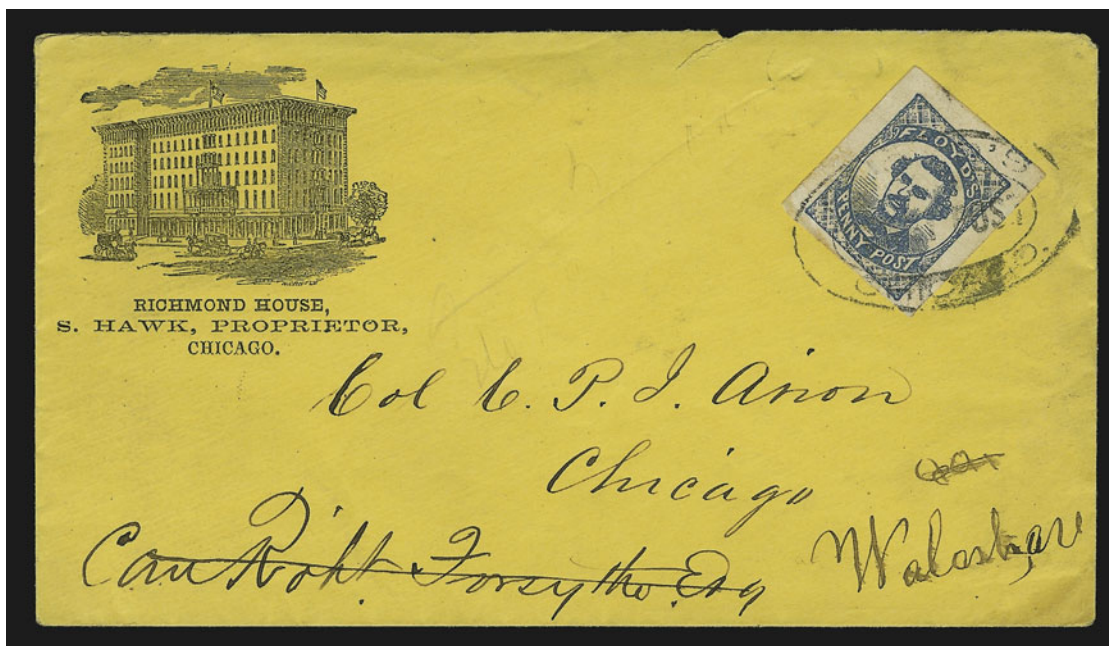 RICHMOND HOUSE,
S. HAWK, PROPRIETOR,
CHICAGO.
FLOYD'S
PENNY POST
CHICAGO.
Col C. P. J. Arion
Chicago
Care Robt. Forsythe. Esq
Wabash, ave